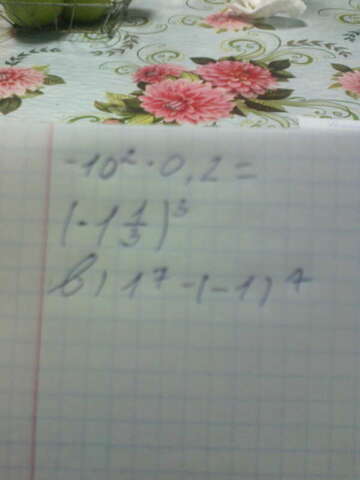 -10² · 0,2 =
(-1 1/3)³
в) 1⁷ - (-1)⁷